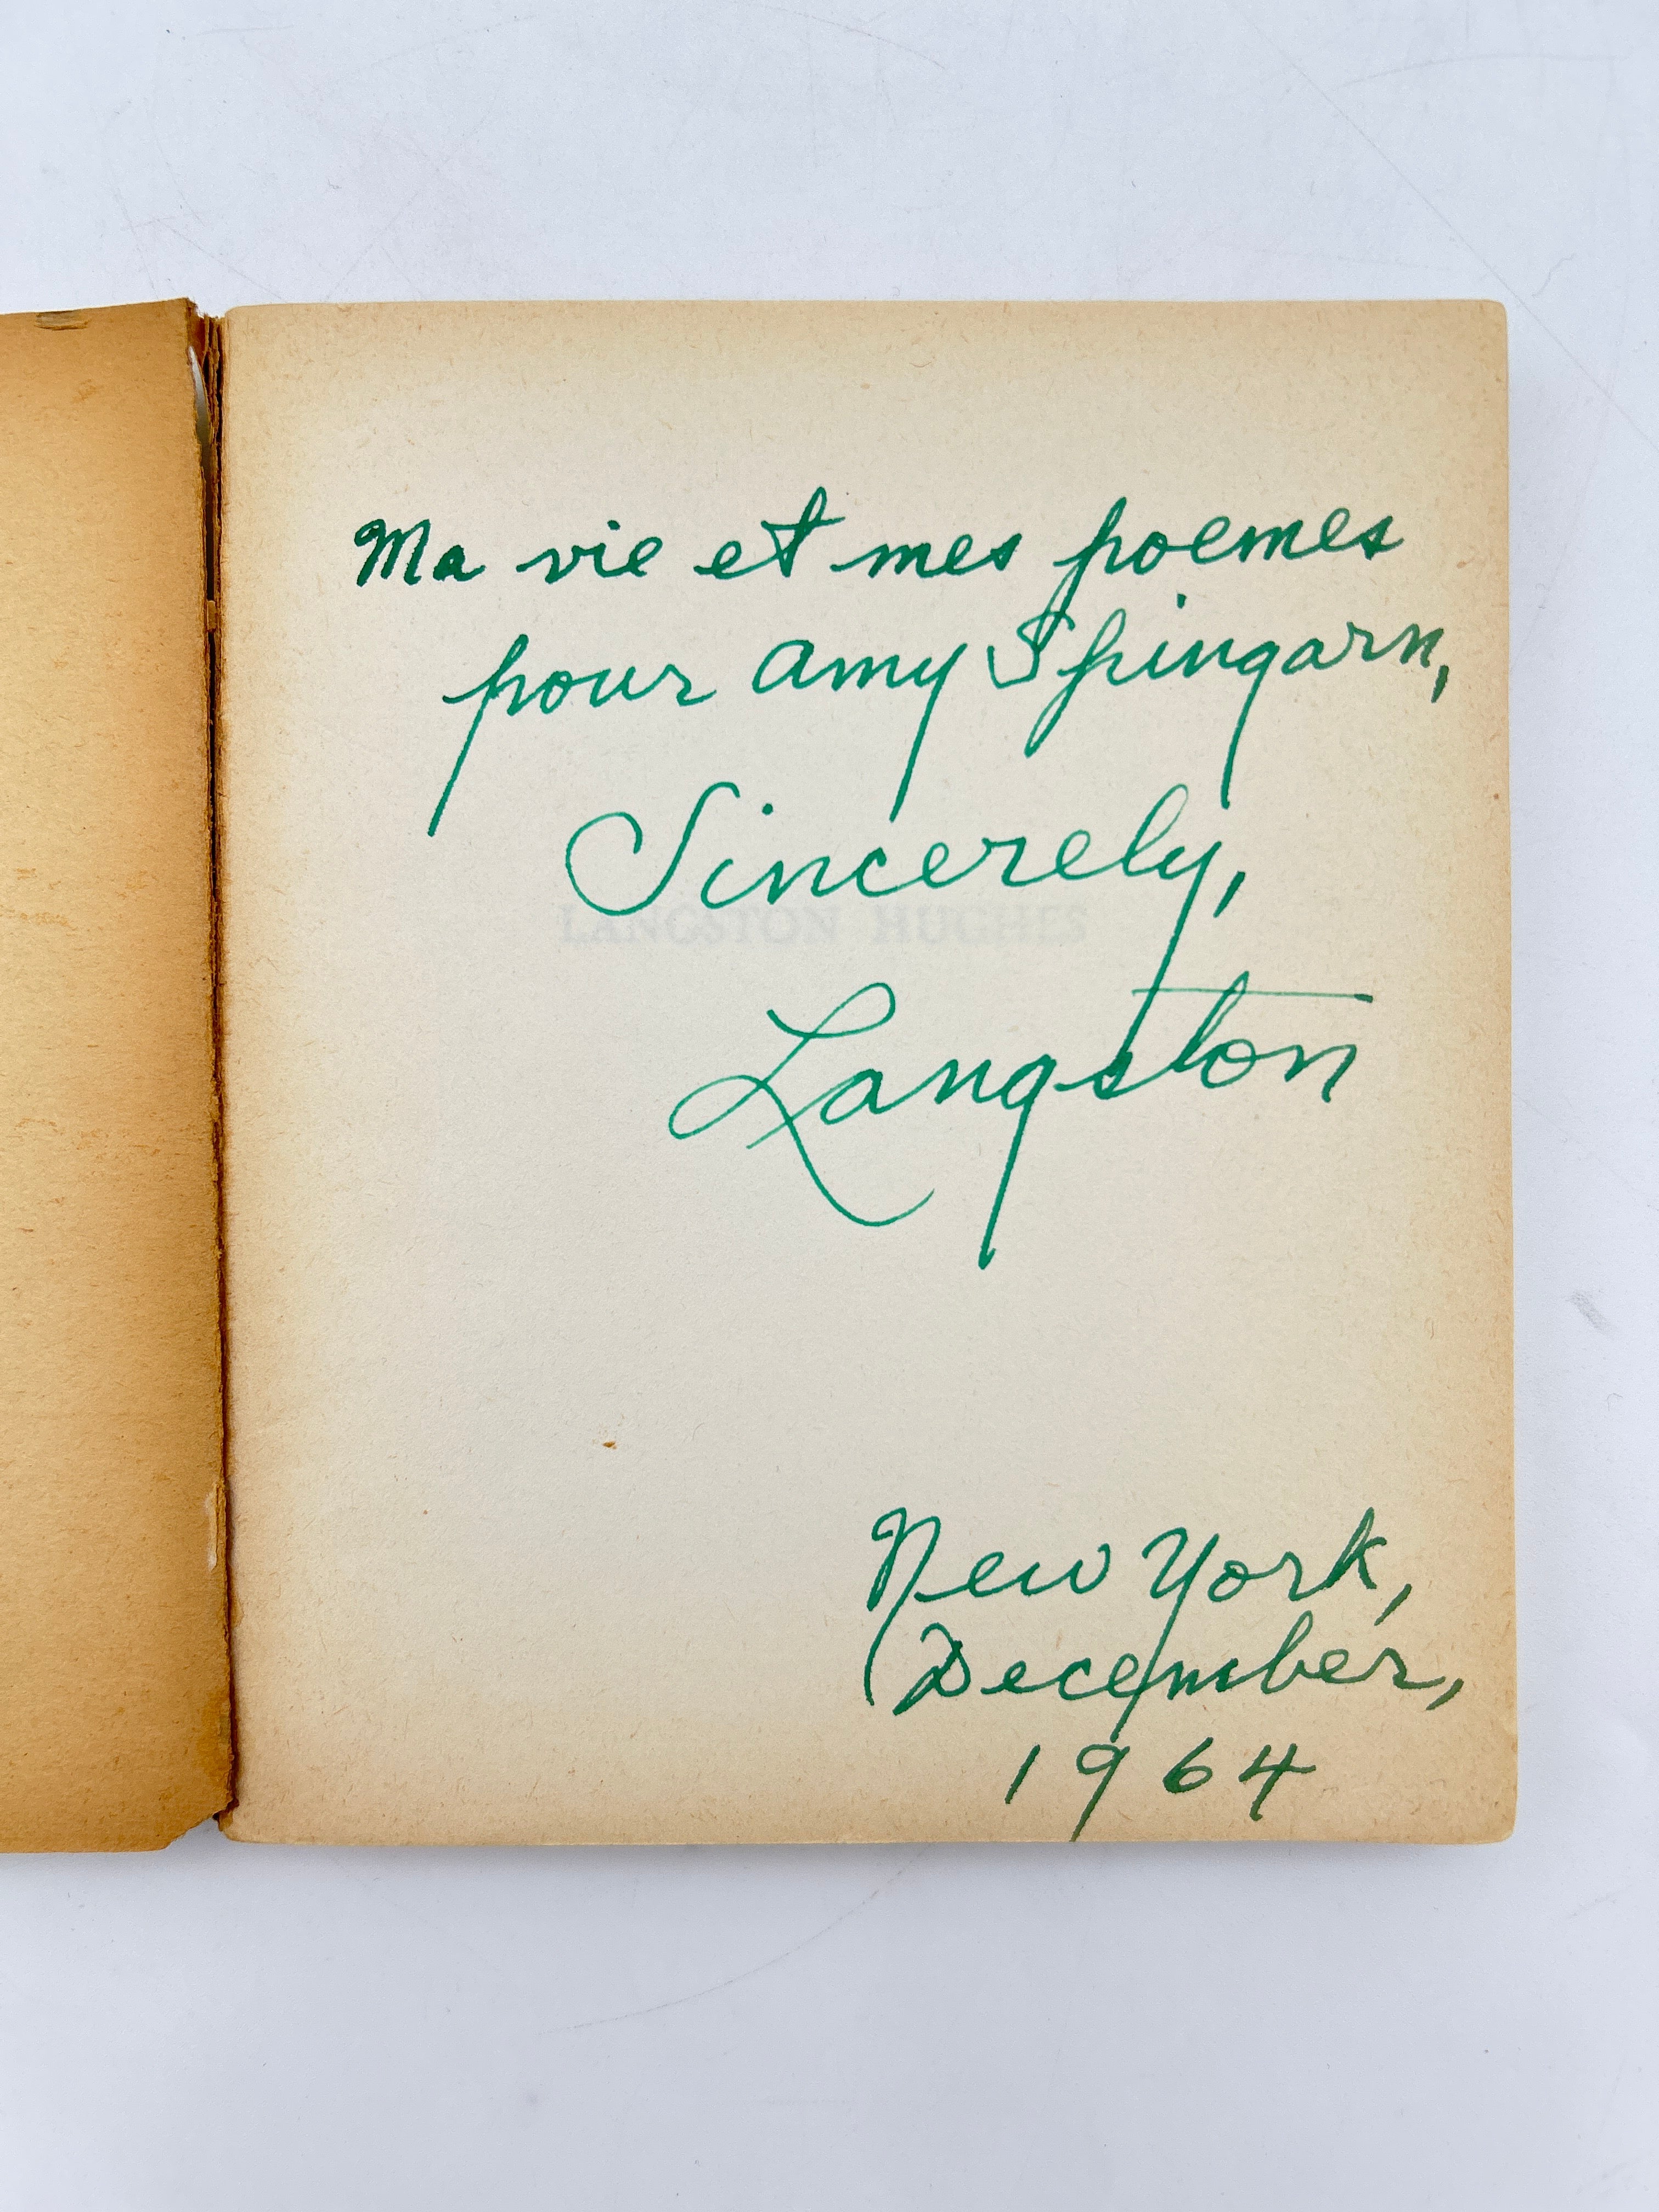 Ma vie et mes poemes
pour Amy Spingarn,
Sincerely,
LANGSTON HUGHES
Langston
New York,
December,
1964